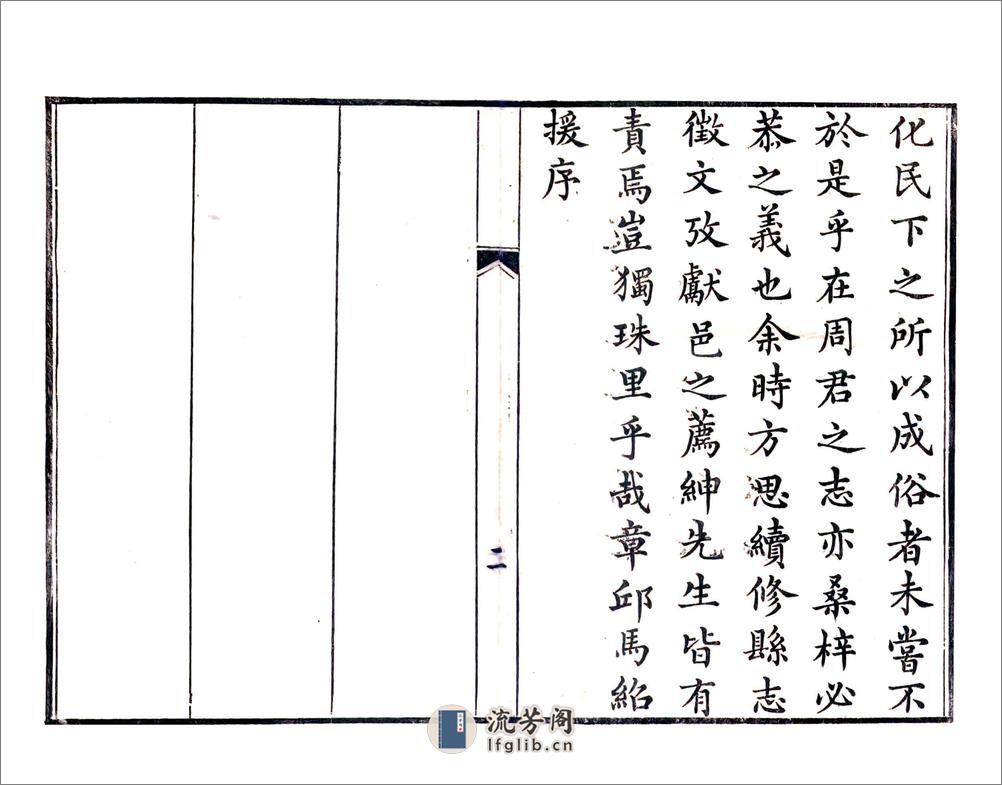 化民下之所以成俗者未嘗不
於是乎在周君之志亦桑梓必
恭之義也余時方思續修縣志
徵文攷獻邑之薦紳先生皆有
責焉豈獨珠里乎哉章邱馬紹
援序
二
流芳阁
lfglib.cn